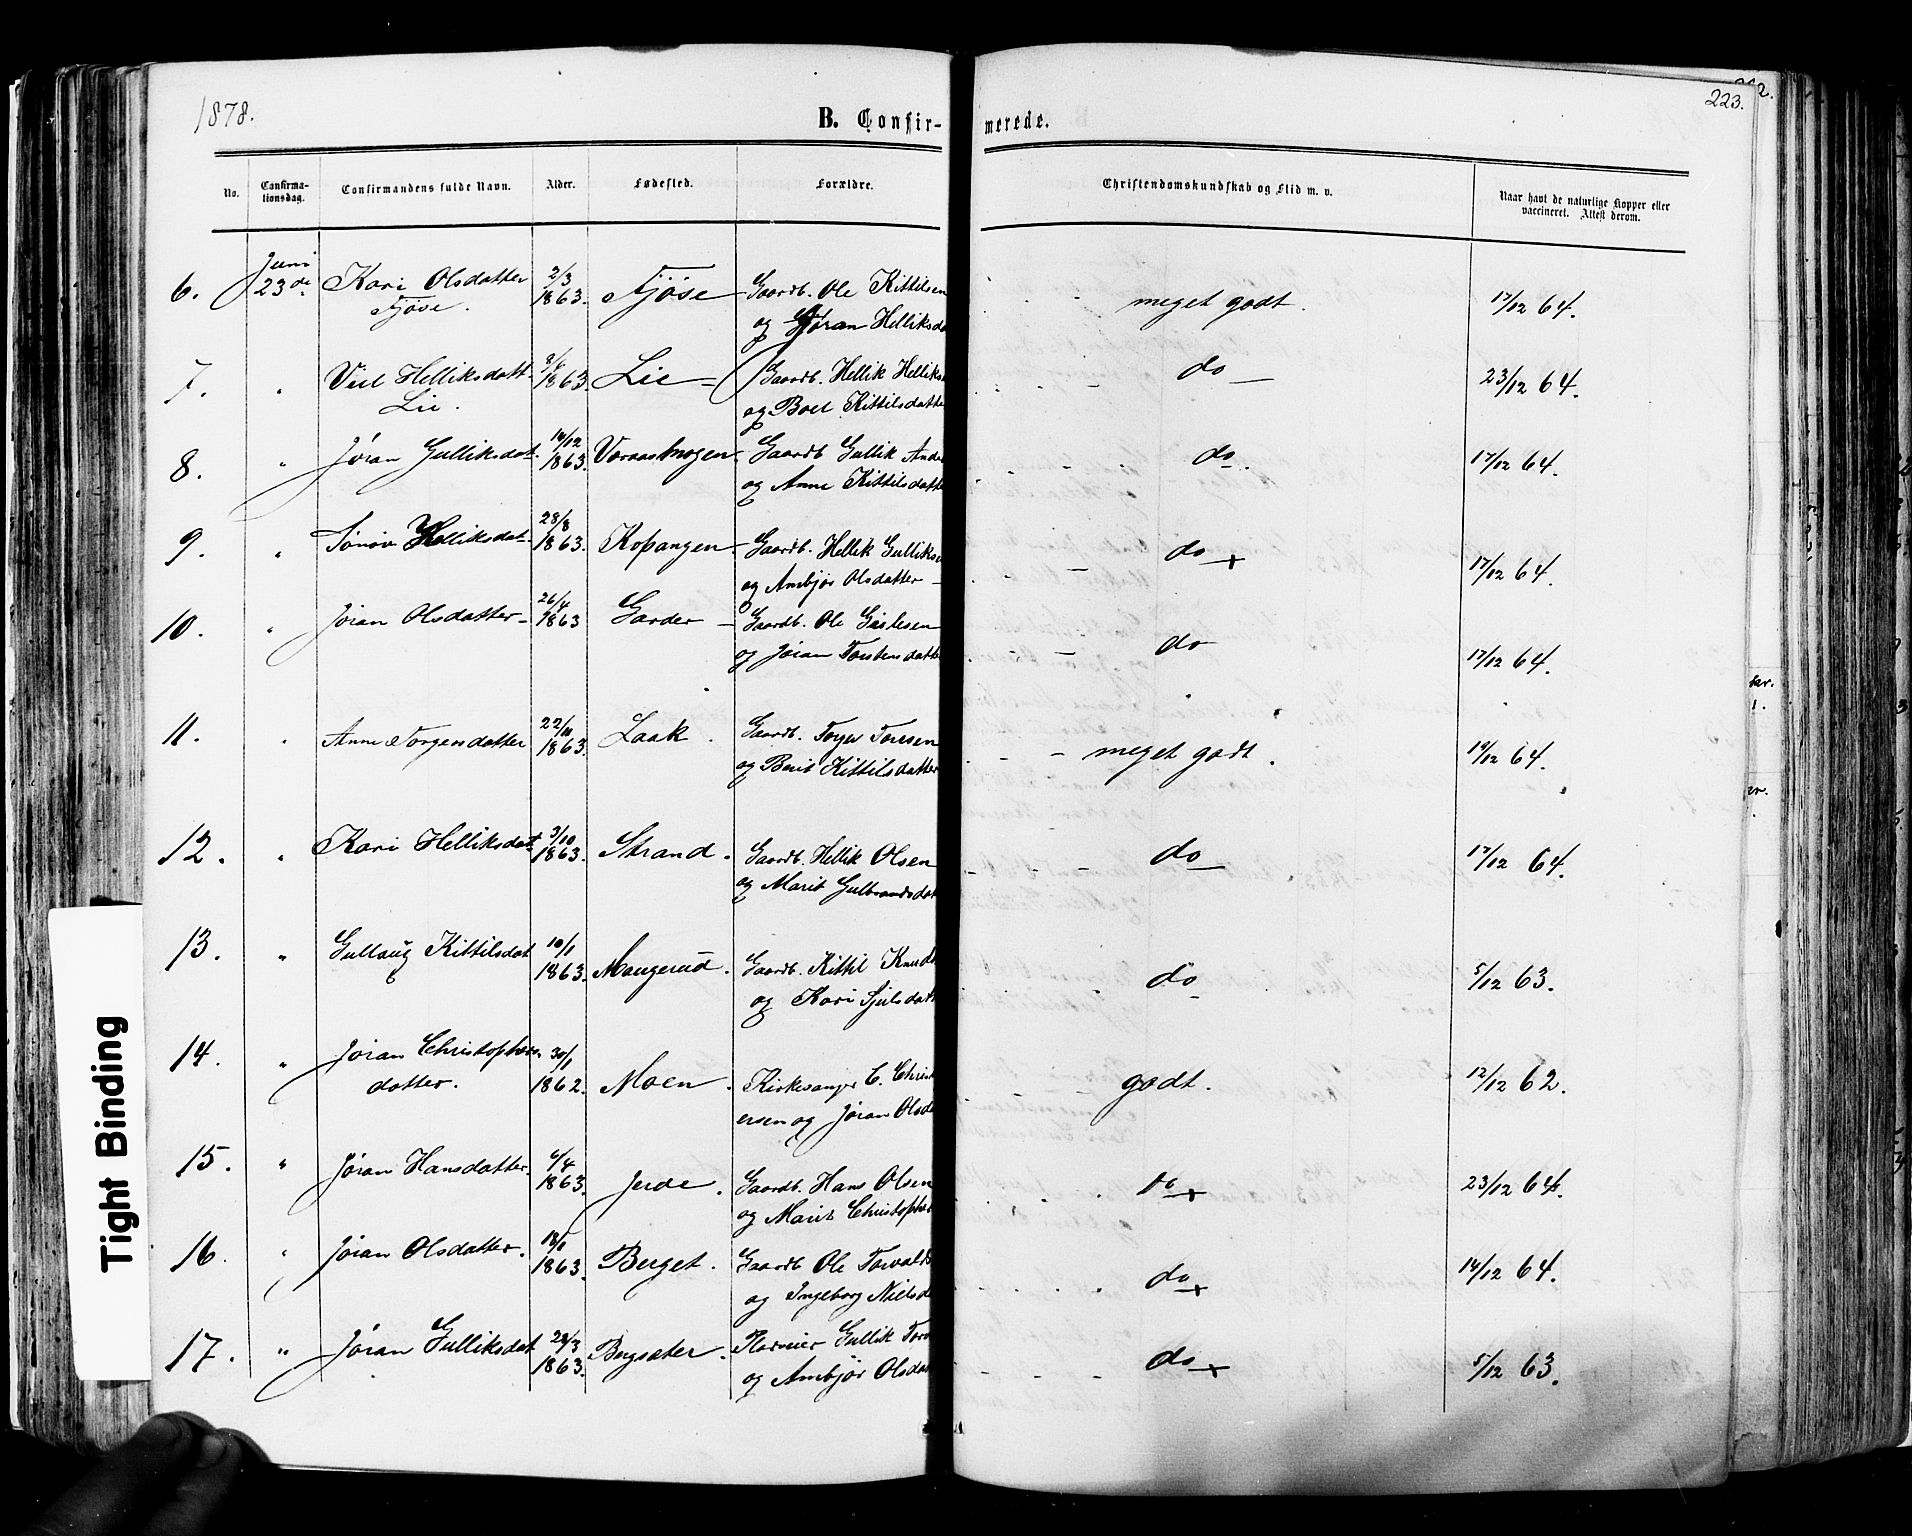 1878.
B. Confir-
merede.
223.
No.
Confirma-
tionsdag.
Confirmandens fulde Navn.
Alder.
Fødested.
Forældre.
Christendomskundskab og Flid m. v.
Naar havt de naturlige Kopper eller
vaccineret. Attest derom.
6. Juni 23de Kari Olsdatter 2/3 1863. Fjøse Gaardb. Ole Kittilsen meget godt. 17/12 64.
Fjøse. og Gøran Helliksda
7. " Helliksdatt. 1863 Lie Gaardb. Hellik Helliks do 23/12 64.
Lie. og Boel Kittilsdatte
8. " Jøran Gulliksdat. 14/12 1863. Gaardb Gullik Ande do. 17/12 64.
og Anne Kittilsdatte
9. " Helliksdat. 28/8 1863. Kopangen Gaardb. Hellik Gulliksen do 17/12 64.
og Ambjør Olsdatter
10. " Jøran Olsdatter 26/4 1863 Garder Gaardb. Ole do 17/12 64.
og Jøran Torstensdatte
11. " Anne Torgersdatter 22/11 1863. Laak. Gaardb. Torger Toresen meget godt. 19/12 64.
og Berit Kittilsdatter
12. " Kari Helliksdat 3/10 1863. Strand. Gaardb. Hellik Olsen do 17/12 64.
og Marit Gulbrandsdat
13. " Gullaug Kittilsdat 10/1 1863. Maugerud. Gaardb. Kittil Knuds do 5/12 63.
og Kari
14. " Jøran Christophers 30/1 1862. Moen. Kirkesanger C. Christ godt. 12/12 62.
datter. ersen og Jøran Olsda
15. " Jøran Hansdatter. 6/4 1863. Jerde. Gaardb. Hans Olsen do 23/12 64.
og Marit Christophe
16. " Jøran Olsdatter. 18/1 1863. Berget. Gaardb Ole Torvalds do 14/12 64.
og Ingeborg Nielsda
17. " Jøran Gulliksdat 1863. Bergsæter. Gullik Torv do 5/12 63.
og Ambjør Olsdat
Tight Binding